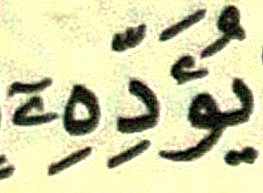 يُؤَدِّهِۦٓ